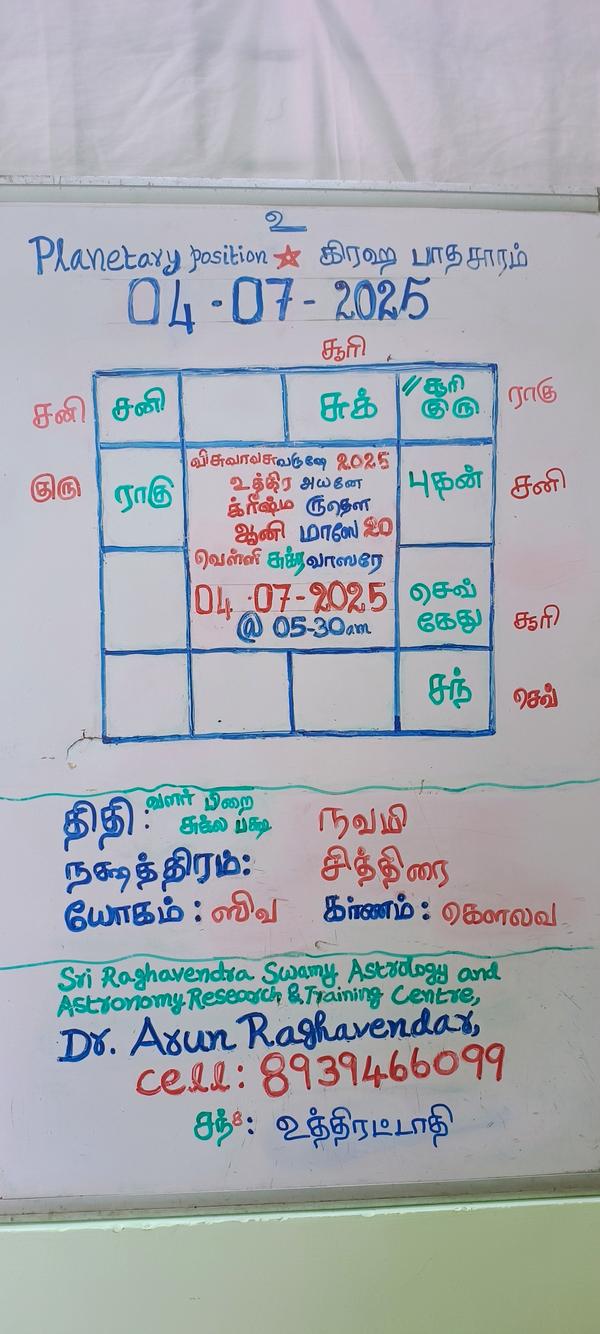 உ
Planetary position கிரஹ பாதசாரம்
04-07-2025
சூரி
சனி சனி சுக் // சூரி குரு ராகு
குரு ராகு புதன் சனி
விசுவாவசுவருஷே 2025
உத்திர அயனே
க்ரீஷ்ம ருதௌ
ஆனி மாஸே 20
வெள்ளி சுக்ரவாஸரே
04-07-2025
@ 05-30am
செவ் கேது சூரி
சந் செவ்
திதி: வளர் பிறை சுக்ல பக்ஷ நவமி
நக்ஷத்திரம்: சித்திரை
யோகம்: ஸிவ கர்ணம்: கௌலவ
Sri Raghavendra Swamy Astrology and
Astronomy Research & Training Centre,
Dr. Arun Raghavendar,
cell: 8939466099
சந்8: உத்திரட்டாதி